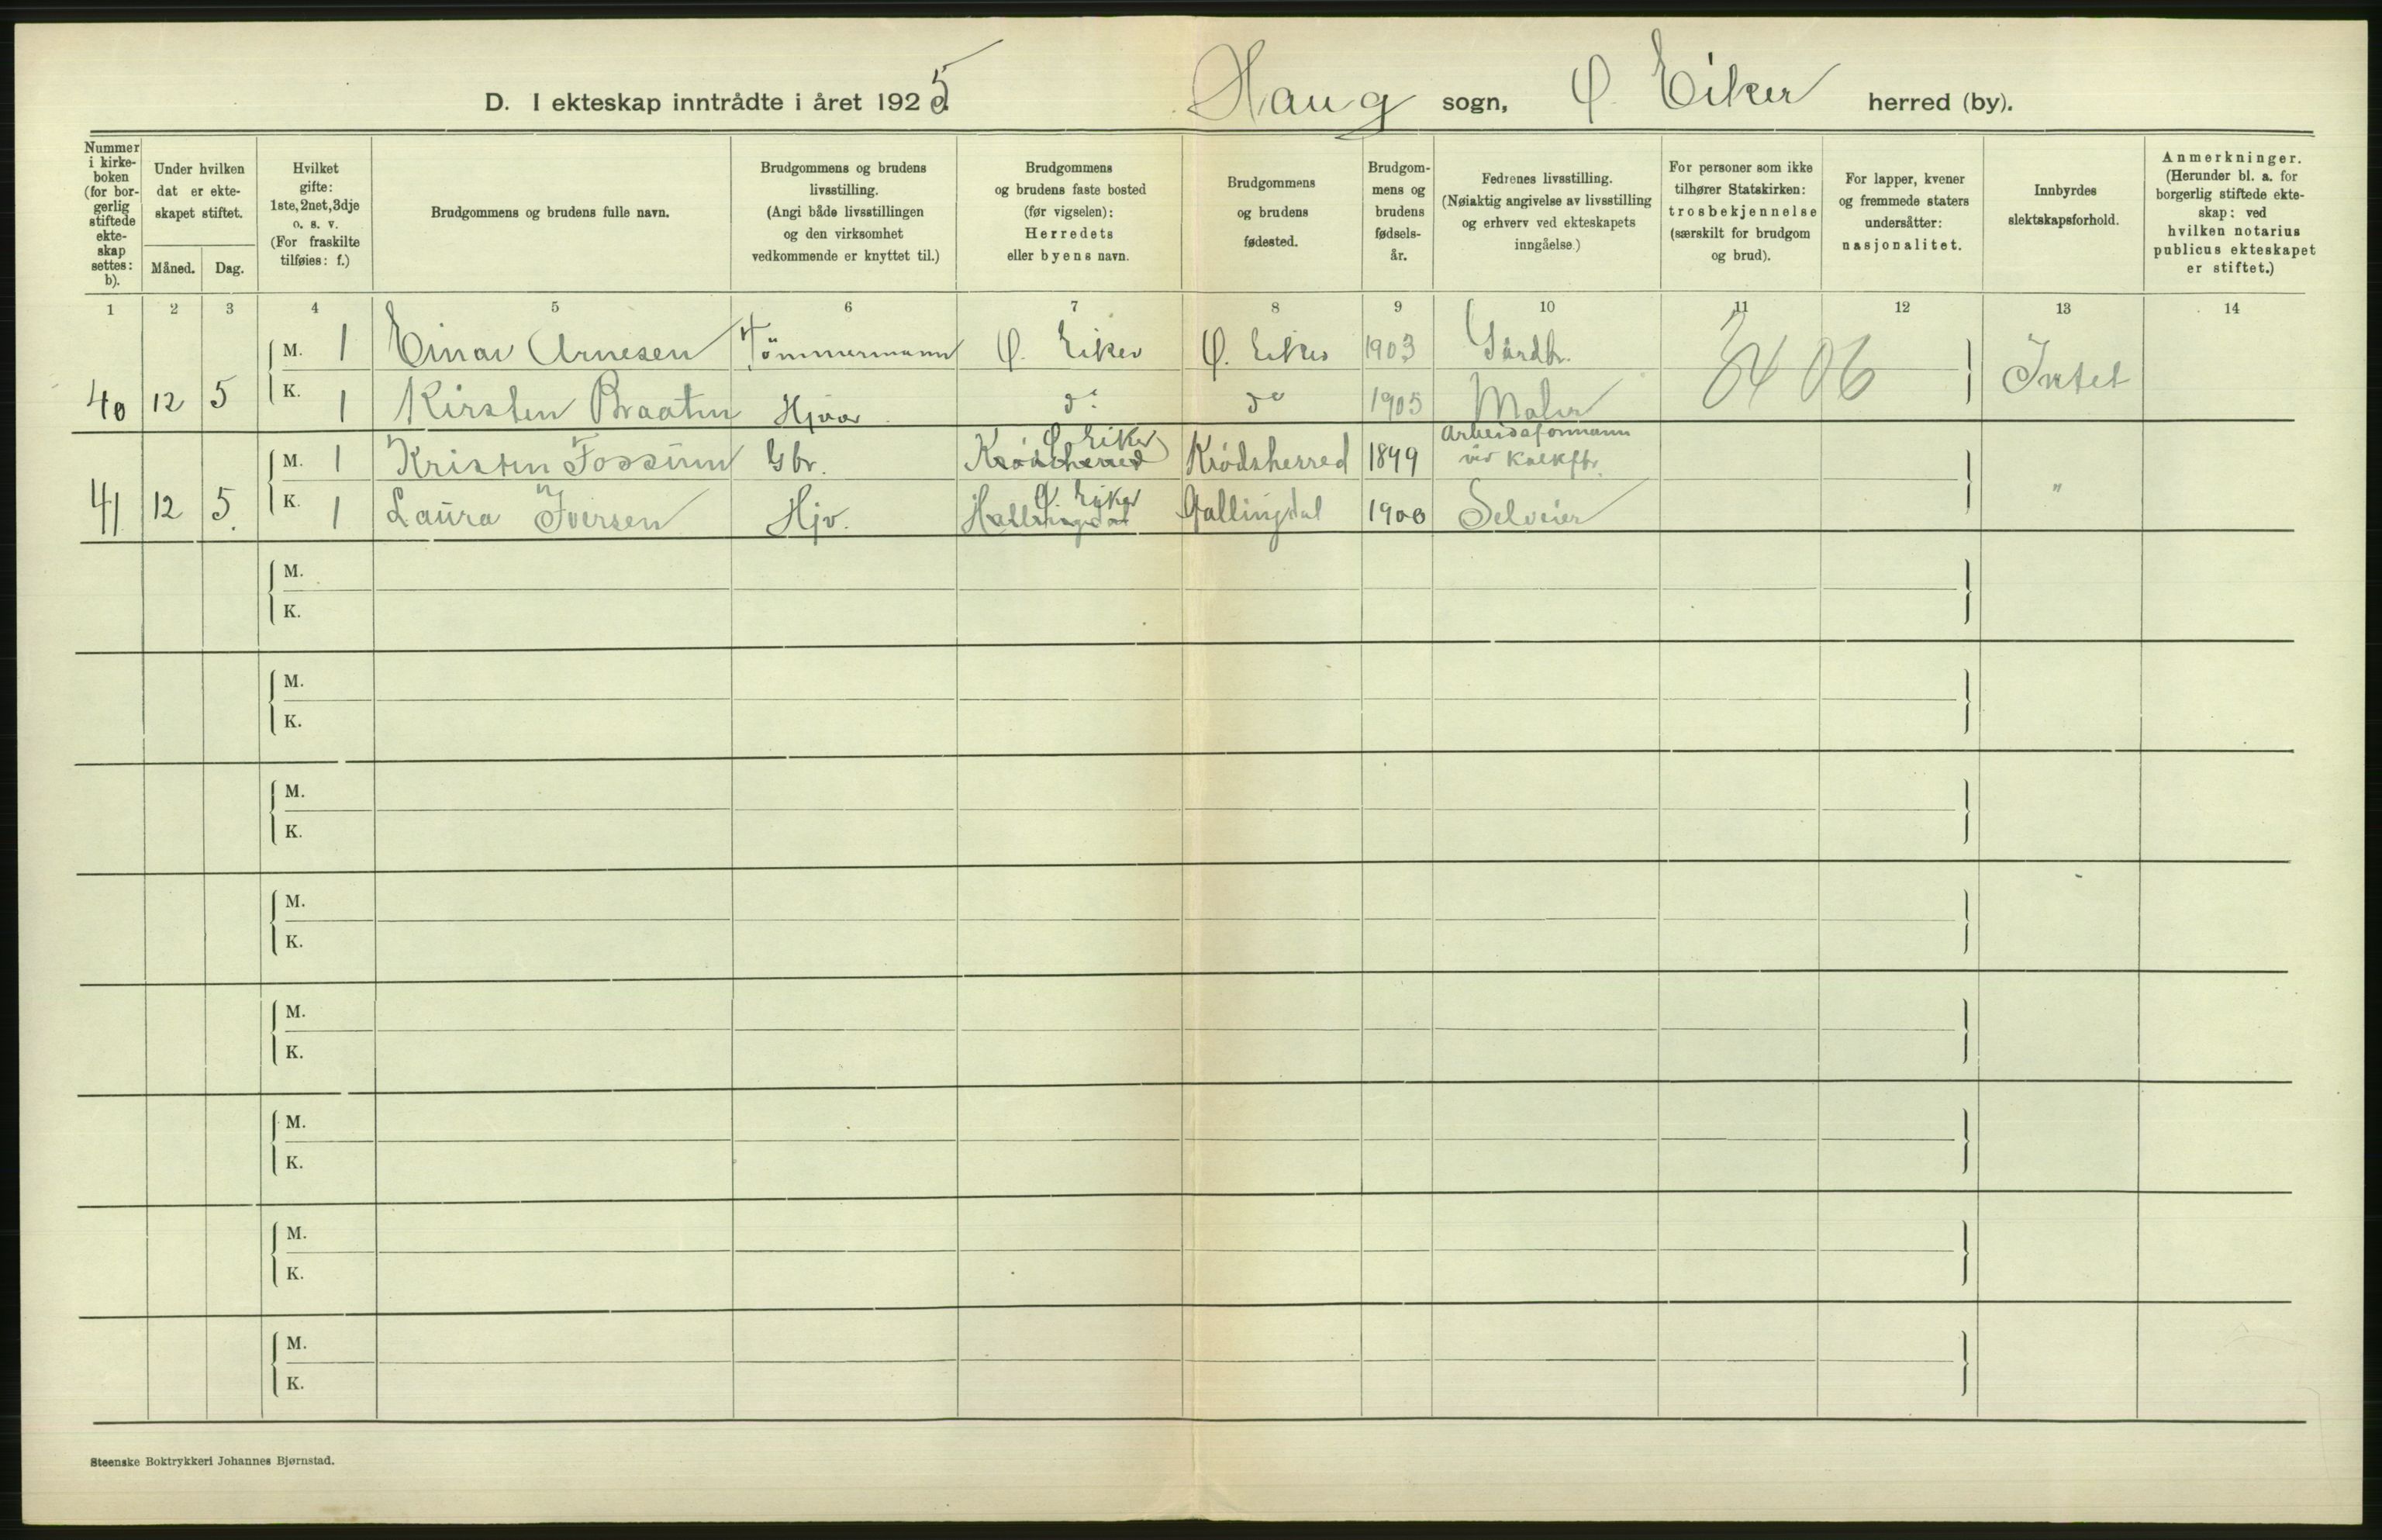 D. I ekteskap inntrådte i året 1925. Haug sogn, Ø. Eiker herred (by).
Nummer i kirke- boken (for bor- gerlig stiftede ekte- skap settes: b).
Under hvilken dat er ekte- skapet stiftet.
Måned. Dag.
Hvilket gifte: 1ste, 2net, 3dje o. s. v. (For fraskilte tilføies: f.)
Brudgommens og brudens fulle navn.
Brudgommens og brudens livsstilling. (Angi både livsstillingen og den virksomhet vedkommende er knyttet til.)
Brudgommens og brudens faste bosted (før vigselen): Herredets eller byens navn.
Brudgommens og brudens fødested.
Brudgom- mens og brudens fødsels- år.
Fedrenes livsstilling. (Nøiaktig angivelse av livsstilling og erhverv ved ekteskapets inngåelse.)
For personer som ikke tilhører Statskirken: trosbekjennelse (særskilt for brudgom og brud).
For lapper, kvener og fremmede staters undersåtter: nasjonalitet.
Innbyrdes slektskapsforhold.
Anmerkninger. (Herunder bl. a. for borgerlig stiftede ekte- skap: ved hvilken notarius publicus ekteskapet er stiftet.)
1 2 3 4 5 6 7 8 9 10 11 12 13 14
M. 1 Einar Arnesen Tömmermann Ø. Eiker Ø. Eiker 1903 Gårdbr. 3406
40 12 5 K. 1 Kirsten Braaten Hjvar do do 1905 Maler Intet
M. 1 Kristen Fossum Gbr. Krödsherred Ø. Eiker Krödsherred 1899 Arbeidsformann ved Kalkfbr.
41 12 5. K. 1 Laura Iversen Hjv. Hallingdal Ø. Eiker Hallingdal 1900 Selveier "
M.
K.
M.
K.
M.
K.
M.
K.
M.
K.
M.
K.
M.
K.
M.
K.
Steenske Boktrykkeri Johannes Bjørnstad.